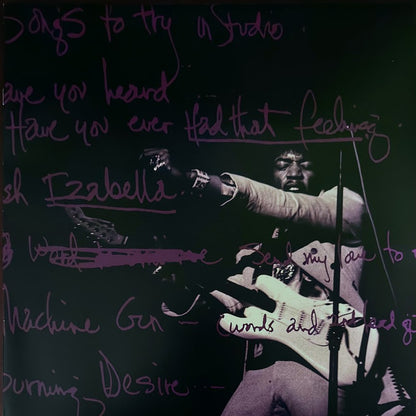 Songs to try in Studio
ave you heard
Have you ever Had that feeling
sh Izabella
Send my love to
Machine Gun – (words and
Burning Desire ---